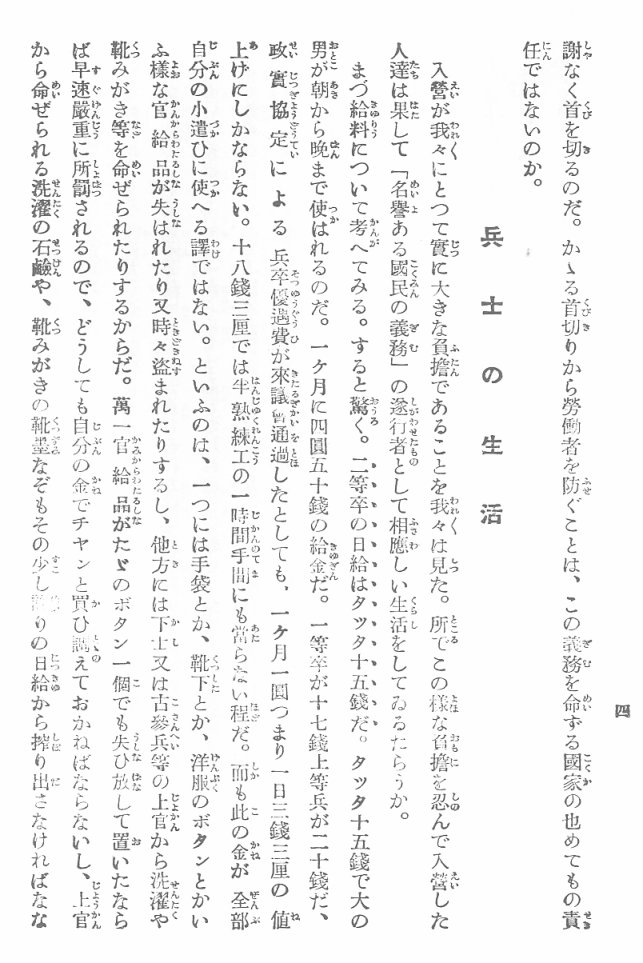 四
謝なく首を切るのだ。かゝる首切りから勞働者を防ぐことは、この義務を命ずる國家の也めてもの責
任ではないのか。
兵士の生活
入營が我々にとつて實に大きな負擔であることを我々は見た。所でこの樣な負擔を忍んで入營した
人達は果して「名譽ある國民の義務」の遂行者として相應しい生活をしてゐるだらうか。
まづ給料について考へてみる。すると驚く。二等卒の日給はタツタ十五錢だ。タツタ十五錢で大の
男が朝から晩まで使はれるのだ。一ケ月に四圓五十錢の給金だ。一等卒が十七錢上等兵が二十錢だ、
政實協定による兵卒優遇費が來議會通過したとしても、一ケ月一圓つまり一日三錢三厘の値
上げにしかならない。十八錢三厘では半熟練工の一時間手間にも當らない程だ。而も此の金が全部
自分の小遣ひに使へる譯ではない。といふのは、一つには手袋とか、靴下とか、洋服のボタンとかい
ふ樣な官給品が失はれたり又時々盜まれたりするし、他方には下士又は古參兵等の上官から洗濯や
靴みがき等を命ぜられたりするからだ。萬一官給品がたゞのボタン一個でも失ひ放して置いたなら
ば早速嚴重に所罰されるので、どうしても自分の金でチヤンと買ひ調えておかねばならないし、上官
から命ぜられる洗濯の石鹼や、靴みがきの靴墨なぞもその少しりの日給から搾り出さなければなな